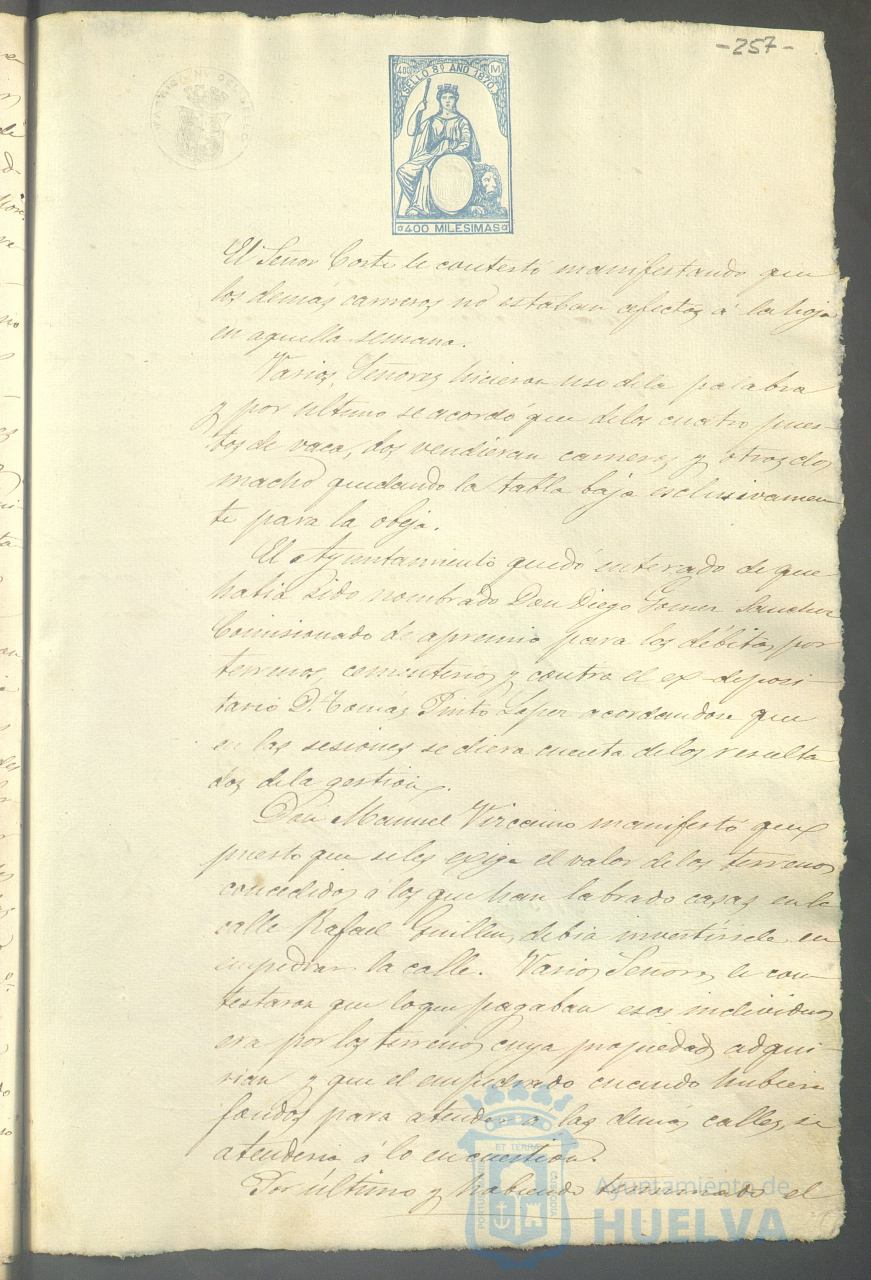 -257-
400 M
SELLO 8º AÑO 1870
400 MILESIMAS
El Señor Corte le contestó manifestando que
los demás carneros no estaban afectos á la hoja
en aquella semana.
Varios Señores hicieron uso de la palabra
y por último se acordó que de los cuatro pues-
tos de vaca, dos vendieran carneros y otros dos
macho quedando la tabla baja esclusivamen
te para la obeja.
El Ayuntamiento quedó enterado de que
habia sido nombrado Don Diego Gomez Sanchez
Comisionado de apremio para los débitos por
terrenos, cementerios y contra el ex-deposi-
tario D. Tomás Pinto Lopez acordandose que
en las sesiones se diera cuenta de los resulta
dos de la gestion.
Don Manuel Vizcaino manifestó que
puesto que se les exige el valor de los terrenos
concedidos á los que han labrado casas en la
calle Rafael Guillen, debia invertirse en
empedrar la calle. Varios Señores le con
testaron que lo que pagaban esos individuos
era por los terrenos cuya propiedad adqui-
rian y que el empedrado cuando hubiera
fondos para atender a las demás calles, se
atenderia á lo en cuestion.
Por último y habiendo terminado el
PORTUS MARIS ET TERRÆ CUSTODIA
Ayuntamiento de
HUELVA